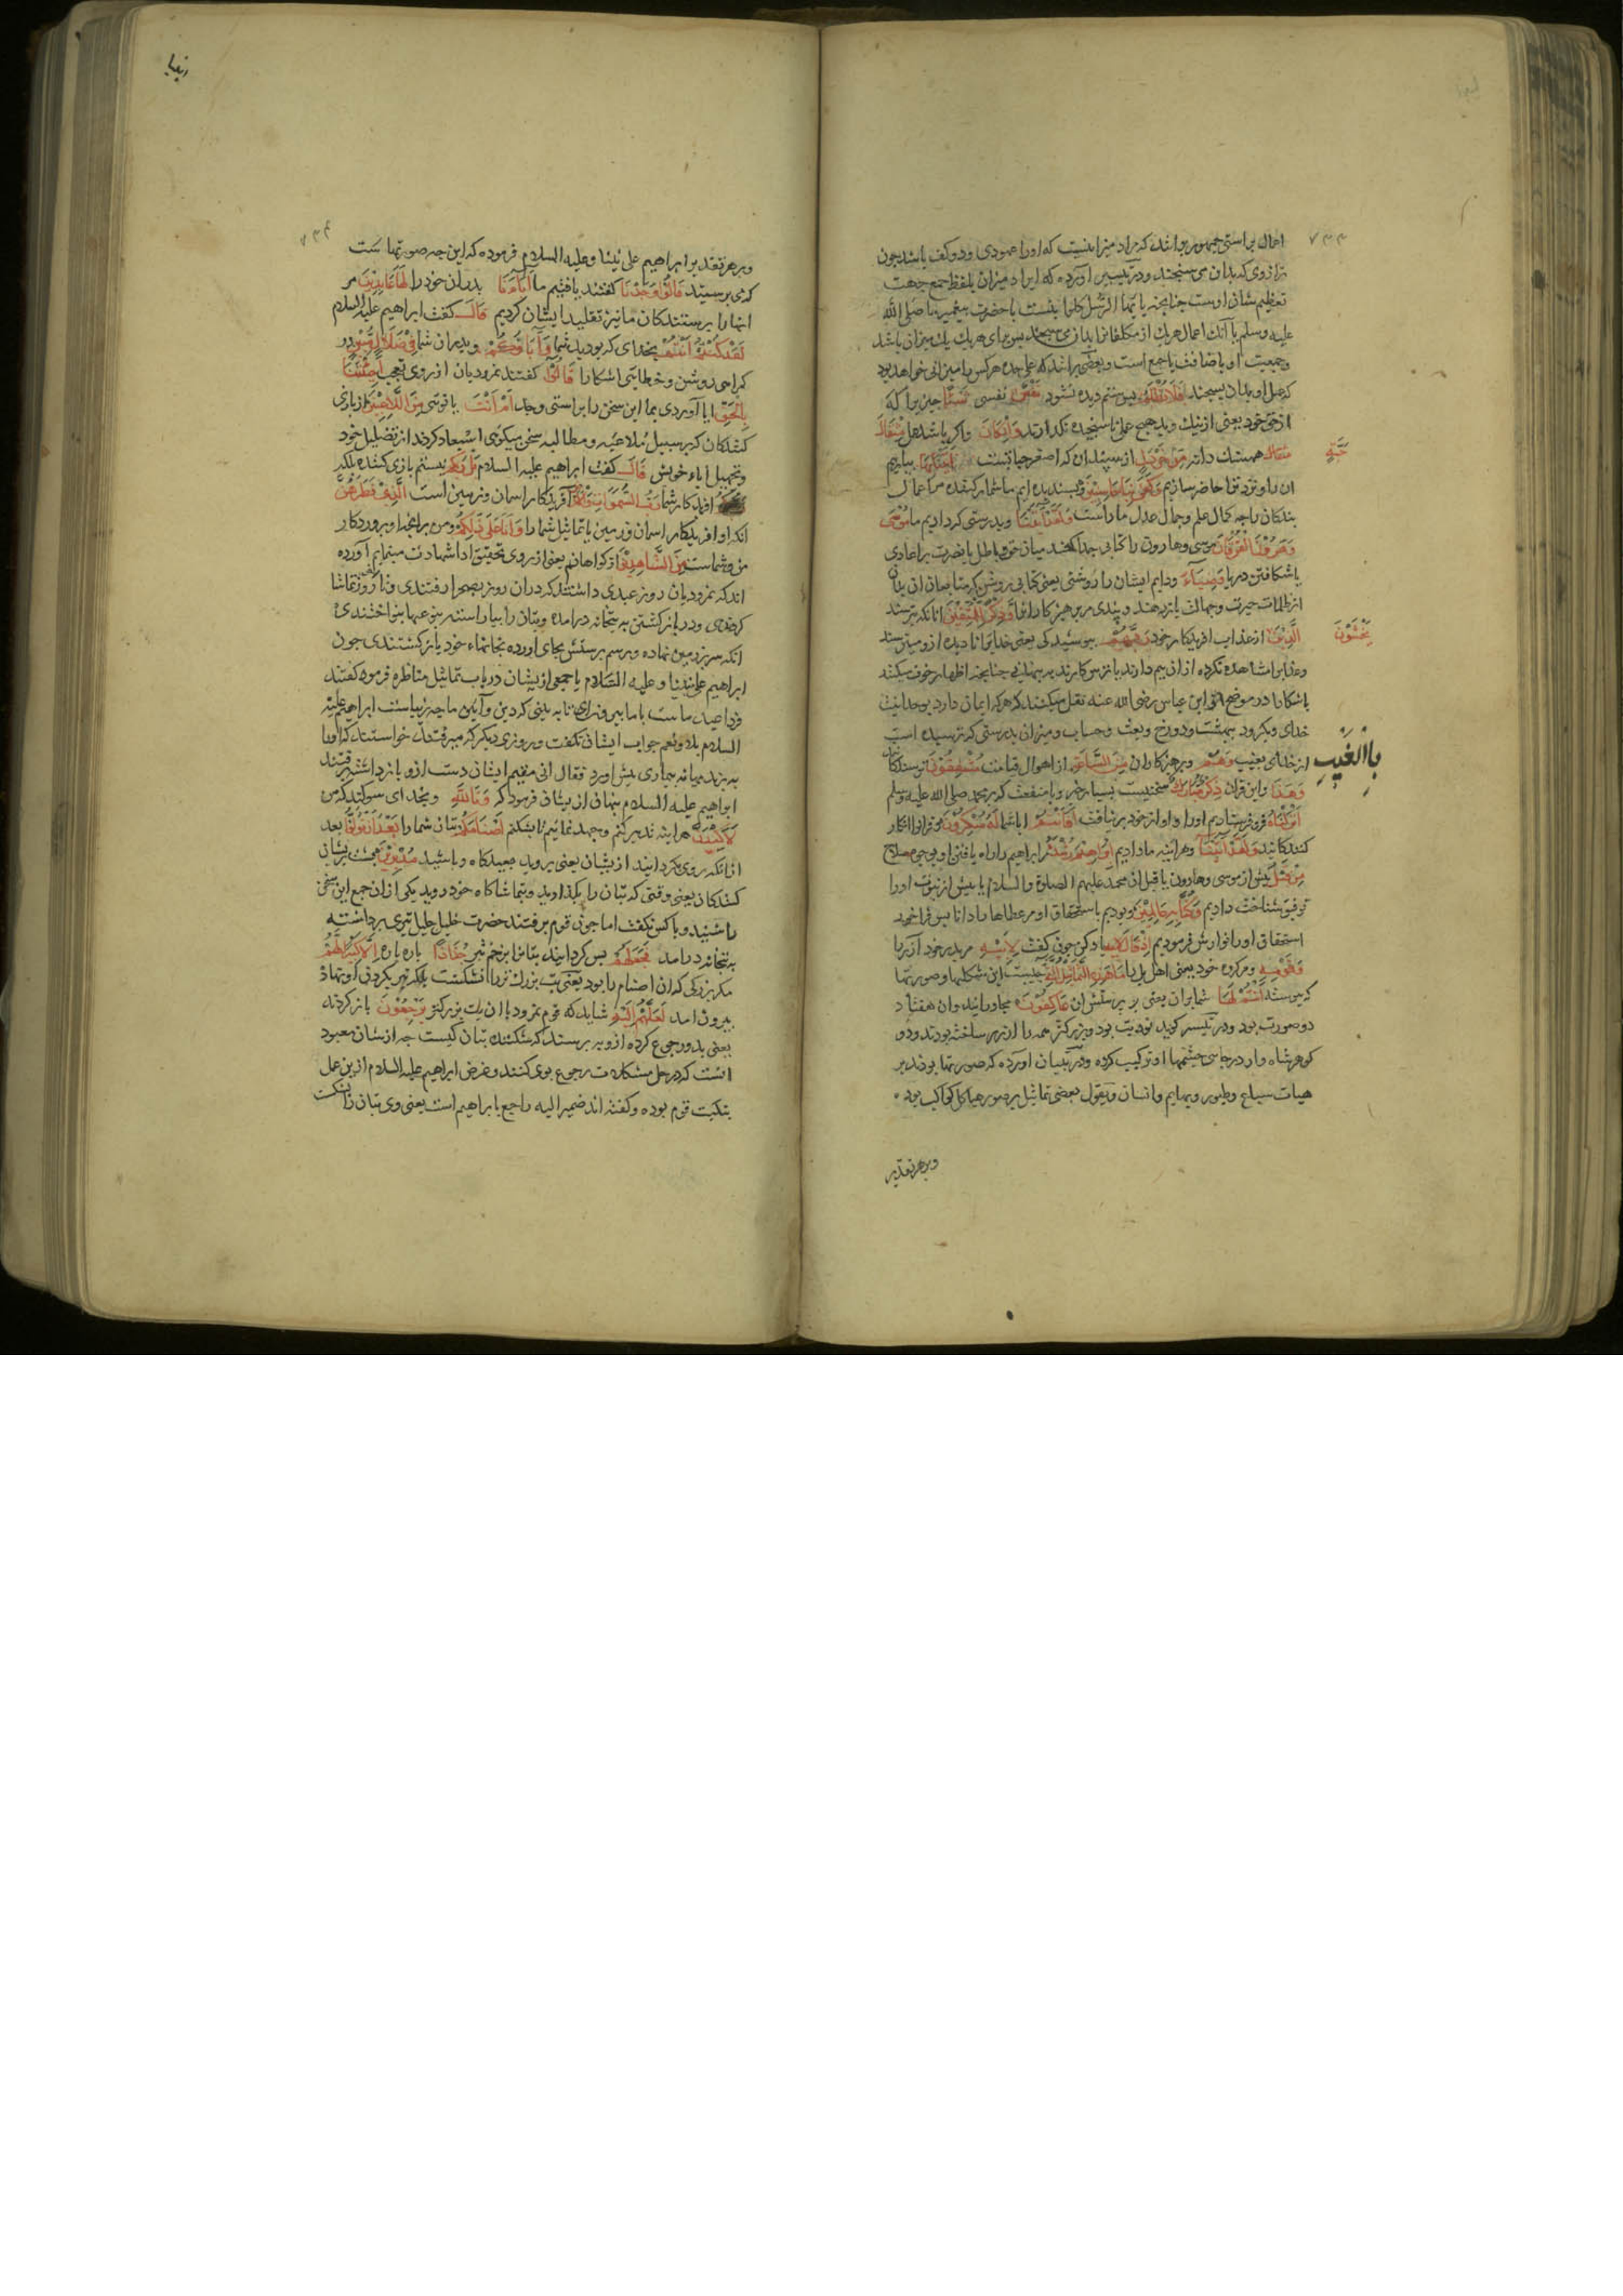 ۷۳۳
اعمال براستی جمهور برانند که مراد میزانیست که او را عمودی و دو کف باشد چون
ترازوی که بدان می سنجند و در تیسیر آورده که ایراد میزان بلفظ جمع جهت
تعظیم شان اوست چنانچه یا ایها الرسل کلوا نسبت با حضرت پیغمبر ما صلی الله
علیه وسلم یا آنک اعمال هر یک از مکلفان بدان می سنجند پس برای هر یک یک میزان باشد
و جمعیت او باضافت با جمع است و بعضی برانند که علی حده هر کس را میزانی خواهد بود
که عمل او بداد بسنجند فَلَا تُظْلَمُ پس ستم دیده نشود نَفْسٌ نفسی شَيْئًا چیزی را که
از حق خود یعنی از نیک و بد هیچ عملی ناسنجیده نگذارند وَإِنْ كَانَ و اگر باشد عمل مِثْقَالَ
حَبَّةٍ
مثقال همسنک دانه مِنْ خَرْدَلٍ از سپندان که اصغر حباتست أَتَيْنَا بِهَا بیاریم
ان را و نزد ترا حاضر سازیم وَكَفَى بِنَا حَاسِبِينَ و بسندیده ایم ما شمار کننده مر اعمال
بندکان را چه کمال علم و جمال عدل ما راست وَلَقَدْ آتَيْنَا و بدرستی که دادیم ما مُوسَى
وَهَارُونَ الْفُرْقَانَ موسی و هارون را کتابی جدا کننده میان حق و باطل یا نصرت بر اعادی
یا شکافتن دریا وَضِيَاءً و دادیم ایشان را روشنی یعنی کتابی روشن که متابعان ان بدان
از ظلمات حیرت و جهالت باز رهند وَذِكْرًا لِلْمُتَّقِينَ و پندی مر پرهیزکاران را انانکه بترسند
يَخْشَوْنَ
الَّذِينَ از عذاب افریدکار خود رَبَّهُمْ بپوشیدکی یعنی خدایرا نادیده از و میترسند
و عذاب را مشاهده نکرده از ان بیم دارند یا ترس کارند در پنهانی چنانچه اظهار خوف میکنند
باشکارا در موضح از ابن عباس رضی الله عنه نقل میکنند که هر که ایمان دارد بوحدانیت
خدای و بکرود ببهشت و دوزخ و بعث و حساب و میزان بدرستی که ترسیده است
بِالْغَيْبِ
از خدای بغیب وَهُمْ و پرهیزکاران مِنَ السَّاعَةِ از اهوال قیامت مُشْفِقُونَ ترسندکانند
وَهَذَا و این قران ذِكْرٌ مُبَارَكٌ سخنیست بسیار خیر و با منفعت که بر محمد صلی الله علیه وسلم
أَنْزَلْنَاهُ فرو فرستادیم او را و او از خود بر نیافت أَفَأَنْتُمْ ایا شما لَهُ مُنْكِرُونَ مر قرانرا انکار
کنندکانید وَلَقَدْ آتَيْنَا و هراینه ما دادیم إِبْرَاهِيمَ رُشْدَهُ ابراهیم را راه یافتن او بوجوه صلاح
مِنْ قَبْلُ پیش از موسی و هارون یا قبل از محمد علیهم الصلوة والسلام یا پیش از نبوت او را
توفیق شناخت دادیم وَكُنَّا بِهِ عَالِمِينَ و بودیم باستحقاق او مر عطاها را دانا پس فراخور
استحقاق او را نوازش فرمودیم إِذْ قَالَ یاد کن چون کفت لِأَبِيهِ مر پدر خود آزر را
وَقَوْمِهِ و مر کروه خود یعنی اهل بابل را مَا هَذِهِ التَّمَاثِيلُ چیست این شکلها و صورتها
که پرستید أَنْتُمْ لَهَا شما مران یعنی بر پرستش ان عَاكِفُونَ مجاورانید وان هفتاد
دو صورت بود و در تیسیر کوید نود بت بود و بزرکتر همه را از زر ساخته بودند و دو
کوهر شاه وار در جای چشمها او ترکیب کرده و در تبیان اورده که صورتها بودند بر
هیات سباع و طیور و بهایم و انسان و بقول بعضی تماثیل بر صور هیاکل کواکب بود
و بر هر تقدیر
انبیا
۷۳۴
و بر هر تقدیر ابراهیم علی نبینا و علیه السلام فرموده که این چه صورتها ست
که می پرستید قَالُوا وَجَدْنَا کفتند یافتیم ما آبَاءَنَا پدران خود را لَهَا عَابِدِينَ مر
انها را پرستندکان ما نیز تقلید ایشان کردیم قَالَ کفت ابراهیم علیه السلام
لَقَدْ كُنْتُمْ أَنْتُمْ بخدای که بودید شما وَآبَاؤُكُمْ و پدران شما فِي ضَلَالٍ مُبِينٍ در
کمراهی روشن و خطایی اشکارا قَالُوا کفتند نمرودیان از روی تعجب أَجِئْتَنَا
بِالْحَقِّ ایا آوردی بما این سخن را براستی و جد أَمْ أَنْتَ یا تویی مِنَ اللَّاعِبِينَ از بازی
کنندکان که بر سبیل ملاعبه و مطالبه سخن میکویی استبعاد کردند از تضلیل خود
و تجهیل اباء خویش قَالَ کفت ابراهیم علیه السلام بَلْ رَبُّكُمْ نیستم بازی کننده بلکه
افریدکار شما رَبُّ السَّمَاوَاتِ وَالْأَرْضِ آفریدکار اسمان و زمین است الَّذِي فَطَرَهُنَّ
انکه او افریدکار اسمان و زمین یا تماثیل شما را وَأَنَا عَلَى ذَلِكُمْ و من برانچه او پروردکار
من و شماست مِنَ الشَّاهِدِينَ از کواهانم یعنی از روی تحقیق ادا شهادت مینمایم آورده
اند که نمرودیان روز عیدی داشتند که دران روز بصحرا رفتندی و تا اخر روز تماشا
کردندی و در باز کشتن به بتخانه درامده و بتان را بیاراسته بنوعبها بنواختندی
انکه سر بزمین نهاده و برسم پرستش بجای اورده بخانهاء خود باز کشتندی چون
ابراهیم علی نبینا و علیه السلام با جمعی ازیشان در باب تماثیل مناظره فرمود کفتند
فردا عید ماست با ما بیرون آی تا به بینی که دین و آیین ما چه زیباست ابراهیم علیه
السلام بلا و نعم جواب ایشان نکفت و روزی دیکر که میرفتند خواستند که او را
به برند بهانه بیماری پیش اورد فقال انی سقیم ایشان دست ازو باز داشته برفتند
ابراهیم علیه السلام پنهان ازیشان فرمود که وَتَاللَّهِ و بخدای سوکند که من
لَأَكِيدَنَّ هراینه تدبیر کنم و جهد نمایم تا بشکنم أَصْنَامَكُمْ بتان شما را بَعْدَ أَنْ تُوَلُّوا بعد
از انکه روی بکردانید ازیشان یعنی بروید بعیدکاه و باشید مُدْبِرِينَ پشت بریشان
کنندکان یعنی وقتی که بتان را بکذارید و بتماشاکاه خود روید یکی از ان جمع این سخن
را شنید و با کس نکفت اما چون قوم برفتند حضرت خلیل جلیل تبری برداشته
به بتخانه درامد فَجَعَلَهُمْ پس کردانید بتانرا بزخم تبر جُذَاذًا پاره پاره إِلَّا كَبِيرًا لَهُمْ
مکر بزرکی که ان اصنام را بود یعنی بت بزرک تر را نشکست بلکه تبر بکردن او نهاد
بیرون امد لَعَلَّهُمْ إِلَيْهِ شاید که قوم نمرود با ان بت بزرکتر يَرْجِعُونَ باز کردند
یعنی بدو رجوع کرده ازو به پرسند که شکننده بتان کیست چه از شان معبود
انست که در حل مشکلات رجوع بوی کنند و غرض ابراهیم علیه السلام ازین عمل
تبکیت قوم بوده و کفته اند ضمیر الیه راجع بابراهیم است یعنی وی بتان را شکست